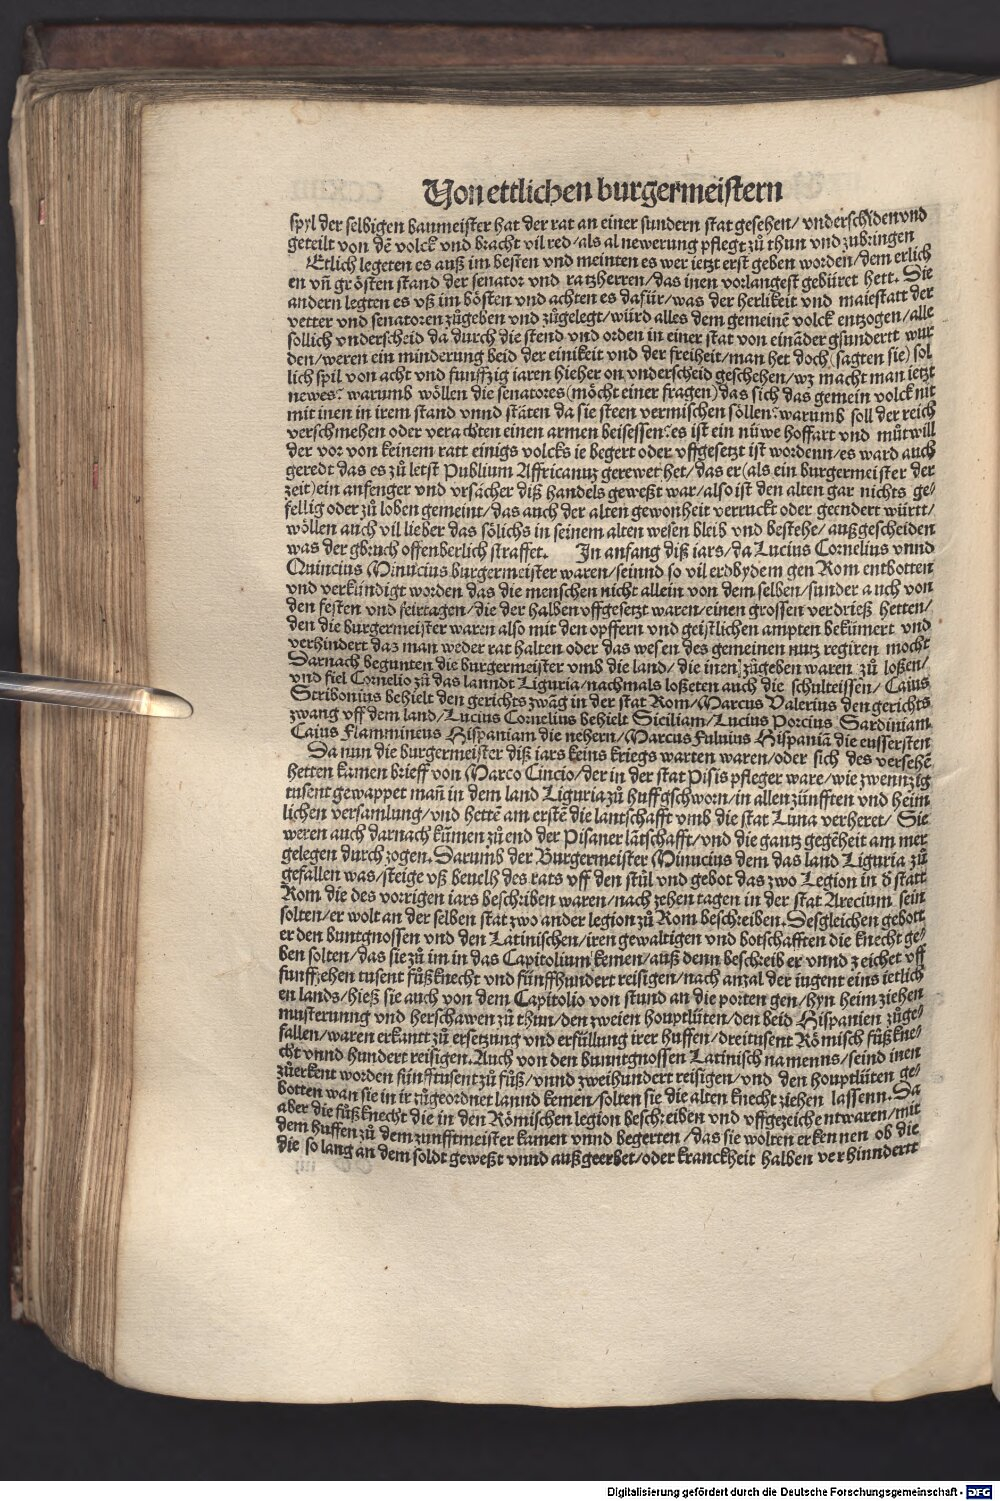 Von ettlichen burgermeistern
spyl der selbigen baumeister hat der rat an einer sundern stat gesehen/ vnderschiden vnd
geteilt von dē volck vnd bracht vil red/als al newerung pflegt zů thun vnd zubringen
Etlich legeten es auß im besten vnd meinten es wer ietzt erst geben worden/dem erlich
en vñ grösten stand der senator vnd ratzherren/das inen vorlangest gebüret hett. Sie
andern legten es vß im bösten vnd achten es dafür/was der herlikeit vnd maiestatt der
vetter vnd senatoren zůgeben vnd zůgelegt/würd alles dem gemeinē volck entzogen/alle
söllich vnderscheid da durch die stend vnd orden in einer stat von eināder gsundertt wur
den/weren ein minderung beid der einikeit vnd der freiheit/man het doch (sagten sie) söl
lich spil von acht vnd funffzig iaren hieher on vnderscheid geschehen/wz macht man ietzt
newes? warumb wöllen die senatores (möcht einer fragen) das sich das gemein volck nit
mit inen in irem stand vnnd stäten da sie steen vermischen söllen? warumb soll der reich
verschmehen oder verachten einen armen beisessen? es ist ein nüwe hoffart vnd můtwill
der vor von keinem ratt einigs volcks ie begert oder vffgesetzt ist wordenn/es ward auch
geredt das es zů letst Publium Affricanuz gerewet het/das er (als ein burgermeister der
zeit) ein anfenger vnd vrsächer diß handels geweßt war/also ist den alten gar nichts ge/
fellig oder zů loben gemeint/das auch der alten gewonheit verruckt oder geendert württ/
wöllen auch vil lieber das sölichs in seinem alten wesen bleib vnd bestehe/ außgescheiden
was der gbruch offenberlich straffet. In anfang diß iars/da Lucius Cornelius vnnd
Quincius Minucius burgermeister waren/seinnd so vil erdbydem gen Rom entbotten
vnd verkündigt worden das die menschen nicht allein von dem selben/sunder auch von
den festen vnd feirtagen/die der halben vffgesetzt waren/einen grossen verdrieß hetten/
den die burgermeister waren also mit den opffern vnd geistlichen ampten bekümert vnd
verhindert daz man weder rat halten oder das wesen des gemeinen nutz regiren mocht
Darnach begunten die burgermeister vmb die land/ die inen zůgeben waren zů loßen/
vnd fiel Cornelio zů das lanndt Liguria/nachmals loßeten auch die schulteissen/ Caius
Scribonius behielt den gerichts zwāg in der stat Rom/Marcus Valerius den gerichts
zwang vff dem land/Lucius Cornelius behielt Siciliam/Lucius Porcius Sardiniam
Caius Flammineus Hispaniam die nehern/Marcus Fuluius Hispaniā die eussersten
Da nun die burgermeister diß iars keins kriegs warten waren/oder sich des versehē
hetten kamen brieff von Marco Cincio/der in der stat Pisis pfleger ware/wie zwennzig
tusent gewappet mañ in dem land Liguria zů huff gschworn/in allen zünfften vnd heim
lichen versamlung/vnd hettē am erstē die lantschafft vmb die stat Luna verheret/ Sie
weren auch darnach kūmen zů end der Pisaner lātschafft/vnd die gantz gegēheit am mer
gelegen durch zogen. Darumb der Burgermeister Minucius dem das land Liguria zů
gefallen was/steige vß beuelh des rats vff den stůl vnd gebot das zwo Legion in d̄ statt
Rom die des vorrigen iars beschriben waren/nach zehen tagen in der stat Arecium sein
solten/er wolt an der selben stat zwo ander legion zů Rom beschreiben. Desgleichen gebott
er den buntgnossen vnd den Latinischen/iren gewaltigen vnd botschafften die knecht ge/
ben solten/das sie zů im in das Capitolium kemen/auß denn beschreib er vnnd zeichet vff
funffzehen tusent fůßknecht vnd fünffhundert reisigen/nach anzal der iugent eins ietlich
en lands/hieß sie auch von dem Capitolio von stund an die porten gen/hyn heim ziehen
musterunng vnd herschawen zů thun/den zweien houptlüten/den beid Hispanien zůge/
fallen/waren erkantt zů ersetzung vnd erfüllung irer huffen/dreitusent Römisch fůßkne/
cht vnnd hundert reisigen. Auch von den bunntgnossen Latinisch namenns/seind inen
zůerkent worden fünfftusent zů fůß/vnnd zweihundert reisigen/vnd den houptlüten ge/
botten wan sie in ir zůgeordnet lannd kemen/solten sie die alten knecht ziehen lassenn. Da
aber die fůßknecht die in den Römischen legion beschreiben vnd vffgezeichentwaren/mit
dem huffen zů dem zunfftmeister kamen vnnd begerten/das sie wolten erkennen ob die
die so lang an dem soldt geweßt vnnd außgeerbet/oder kranckheit halben verhinndertt
Digitalisierung gefördert durch die Deutsche Forschungsgemeinschaft - DFG